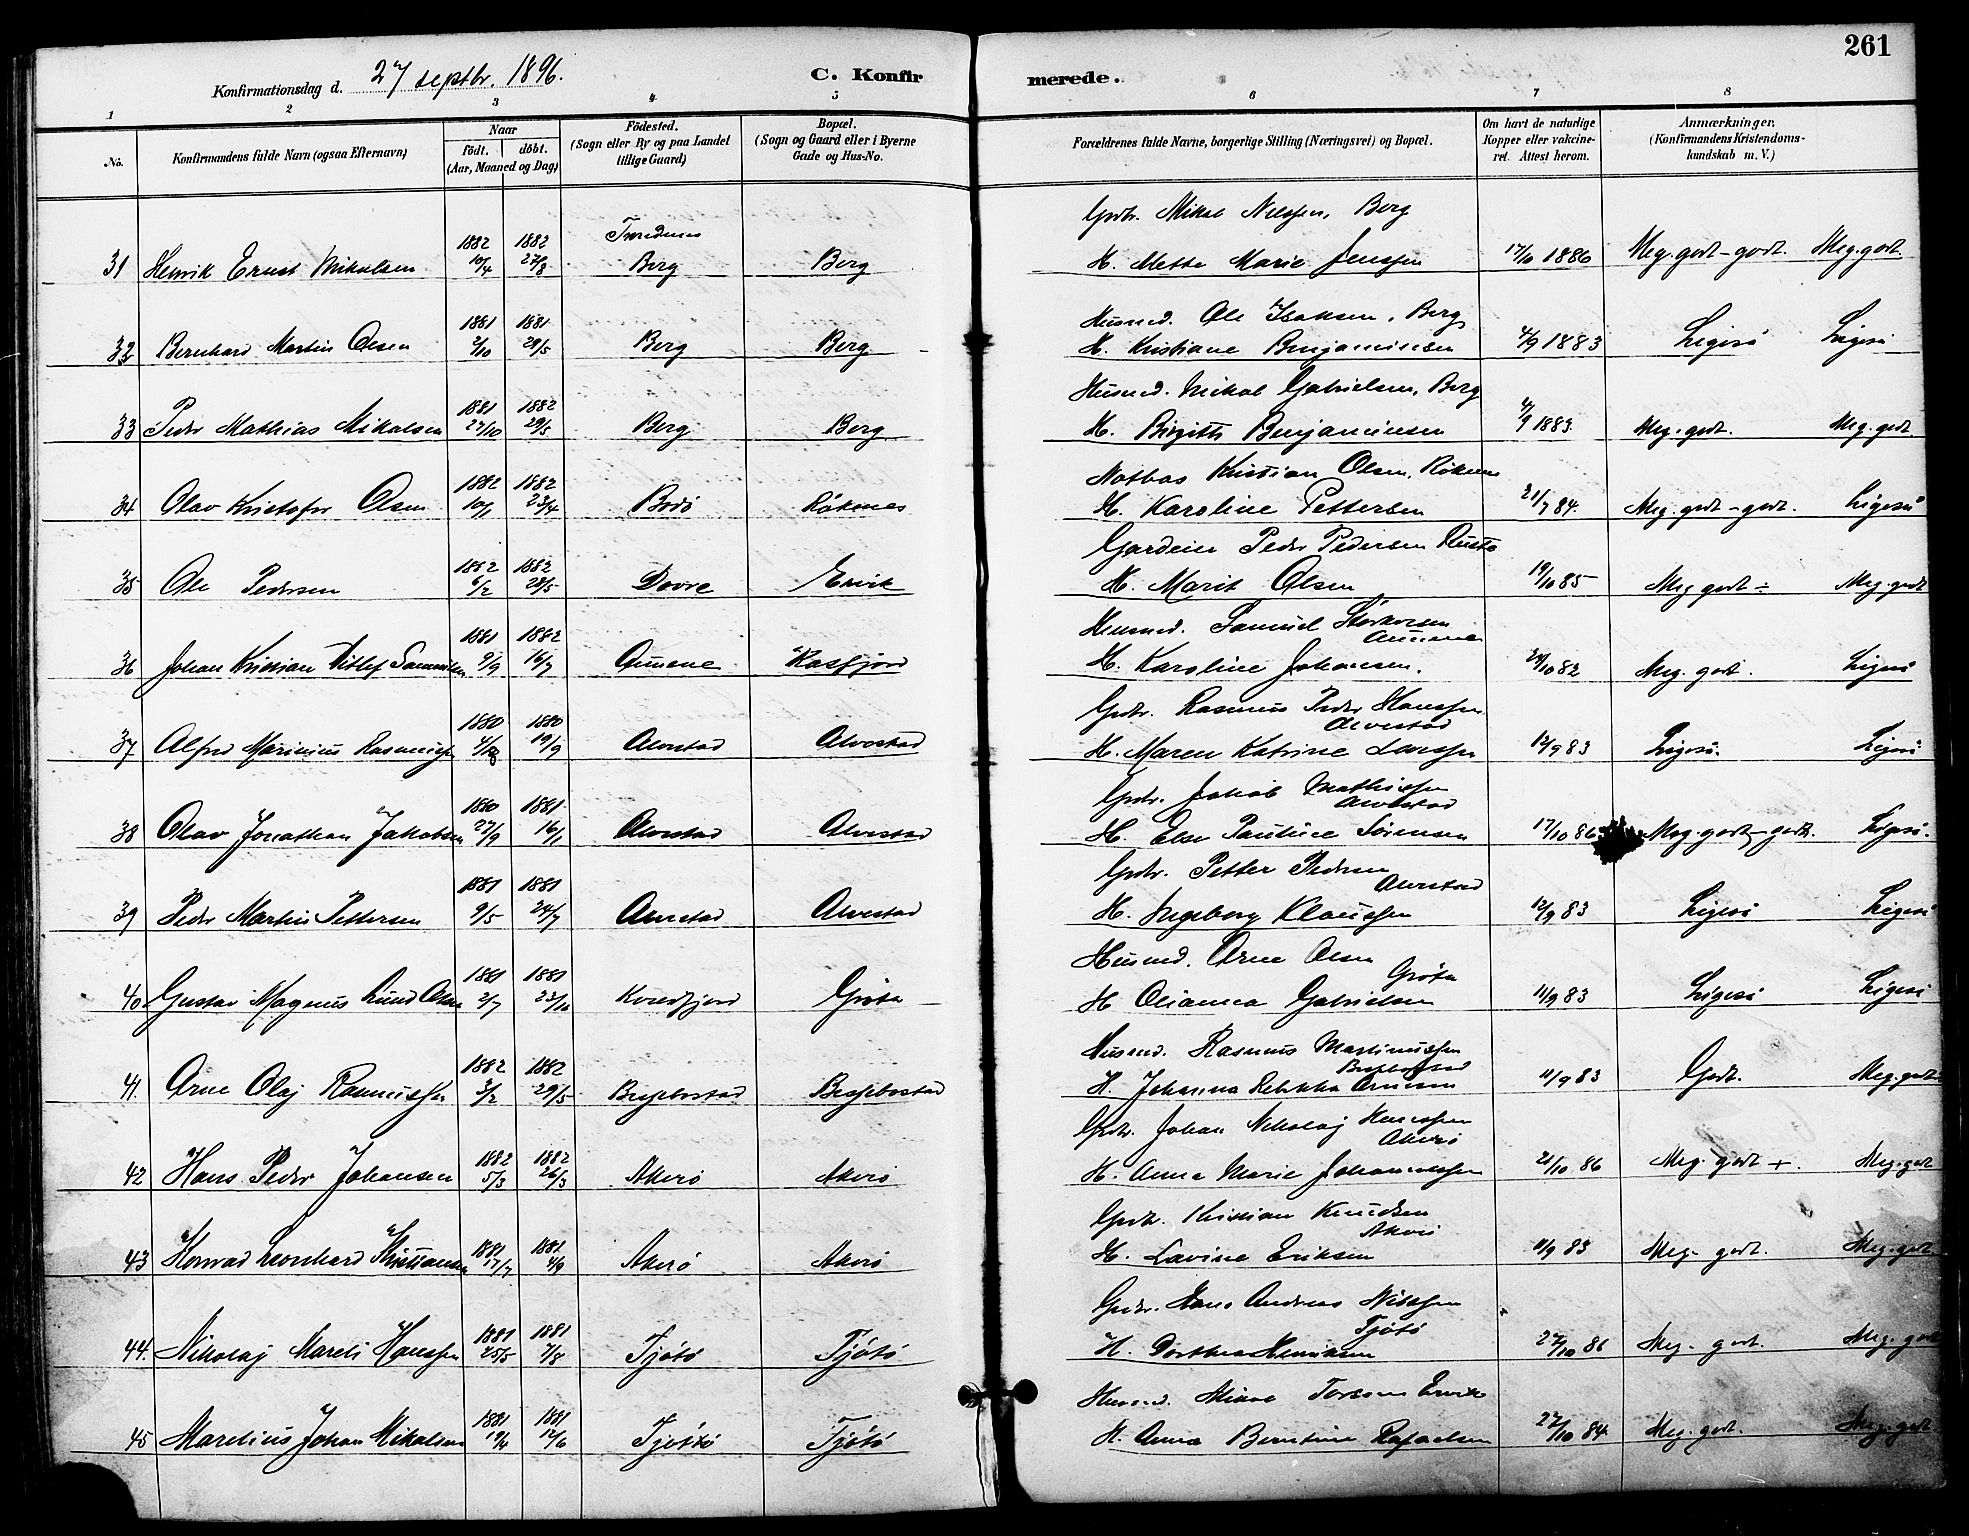 261
Konfirmationsdag d. 27 septbr. 1896.
C. Konfirmerede.
1 2 3 4 5 6 7 8
No.
Konfirmandens fulde Navn (ogsaa Efternavn)
Naar
Født. døbt.
(Aar, Maaned og Dag)
Fødested.
(Sogn eller By og paa Landet
tillige Gaard)
Bopæl.
(Sogn og Gaard eller i Byerne
Gade og Hus-No.
Forældrenes fulde Navne, borgerlige Stilling (Næringsvei) og Bopæl.
Om havt de naturlige
Kopper eller vakcine-
ret. Attest herom.
Anmærkninger,
(Konfirmandens Kristendoms-
kundskab m. V.)
Grdbr. Mikal Nilssen, Berg
31 Henrik Ernst Mikalsen 1882 10/4 1882 27/8 Berg Berg H. Mette Marie Jenssen 17/10 1886 Meg. godt - godt. Meg. godt.
Husmd. Ole Isaksen, Berg
32 Bernhard Martin Olsen 1881 2/10 1881 29/5 Berg Berg H. Kristiane Benjaminsen 4/9 1883 Ligeså Ligeså
Husmd. Mikal Gabrielsen, Berg
33 Peder Mathias Mikalsen 1881 27/10 1882 29/5 Berg Berg H. Birgitte Benjaminsen 4/9 1883. Meg. godt. Meg. godt.
Kristian Olsen, Røkenes
34 Olav Kristofer Olsen 1882 10/1 1882 23/4 Bodø Røkenes H. Karoline Pettersen 21/7 84. Meg. godt - godt. Ligeså
Gardeier Peder Pedersen
35 Ole Pedersen 1882 6/2 1882 28/5 Dovre Ervik H. Marit Olsen 19/10 85 Meg godt ÷ Meg. godt
Husmd. Samuel
36 Johan Kristian Ditlef 1881 9/9 1882 16/7 Kasfjord H. Karoline Johansen. 82 Meg. godt. Ligeså
Grdbr. Rasmus Peder Hanssen
Alvestad
37 Alfred Marinius Rasmussen 1880 1880 19/9 Alvestad Alvestad H. Maren Katrine Larssen 12/9 83 Ligeså. Ligeså
Grdbr. Jakob Mathissen
Alvestad
38 Olav Jonathan Jakobsen 1880 27/9 1881 16/1 Alvestad Alvestad H. Else Pauline Sørensen 17/10 86 Meg. godt - godt. Ligeså.
Grdbr. Petter Pedersen
Alvestad
39 Peder Martin Pettersen 1881 9/5 1881 24/7 Alvestad Alvestad H. Ingeborg Klaussen 12/9 83 Ligeså Ligeså
Husmd. Arne Olsen
Grøta
40. Gustav Magnus Lund Olsen 1881 2/7 1881 23/10 Kvædfjord Grøta H Olianna Gabrielsen 11/9 83 Ligeså Ligeså
Husmd. Rasmus Martinussen
41. Arne Olaj Rasmussen 1882 3/2 1882 29/5 Bessebostad Bessebostad H. Johanna Rebekka Arnesen 11/9 83 Godt. Meg. godt.
Grdbr. Johan Nikolaj
Akerø
42 Hans Peder Johansen 1882 5/3 1882 26/3 Akerø Akerø H. Anna Marie Johannessen 21/10 86 Meg. godt +. Meg. godt
Grdbr. Kristian Knudsen
Akerø
43 Konrad Leonhard Kristiansen 1881 17/7 1881 4/9 Akerø Akerø H. Lavine Eriksen 11/9 83 Meg. godt. Meg. godt
Grdbr. Hans Andreas Nilssen
Tjøtø
44. Nikolaj Mareli Hanssen 1881 25/5 1881 7/8 Tjøtø Tjøtø H. Dorthea Henriksen 27/10 86 Meg. godt. Meg. godt
Husmd. Mikal Toresen Ervik
45 Marelius Johan Mikalsen 1881 19/4 1881 12/6 Tjøtø Tjøtø H. Anna Berntine Rafaelsen 27/10 84. Meg. godt. Meg. godt.